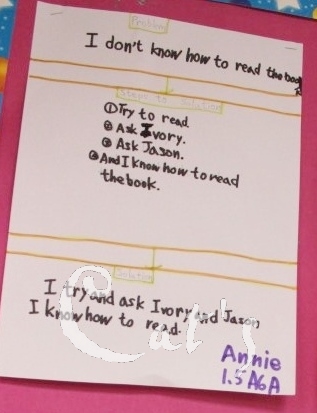 Problem
I don't know how to read the book
Steps to solution
①Try to read
②Ask Ivory.
③Ask Jason.
④And I know how to read
the book.
Solution
I try and ask Ivory and Jason
I know how to read.
Cat's
Annie
1.5 A6A